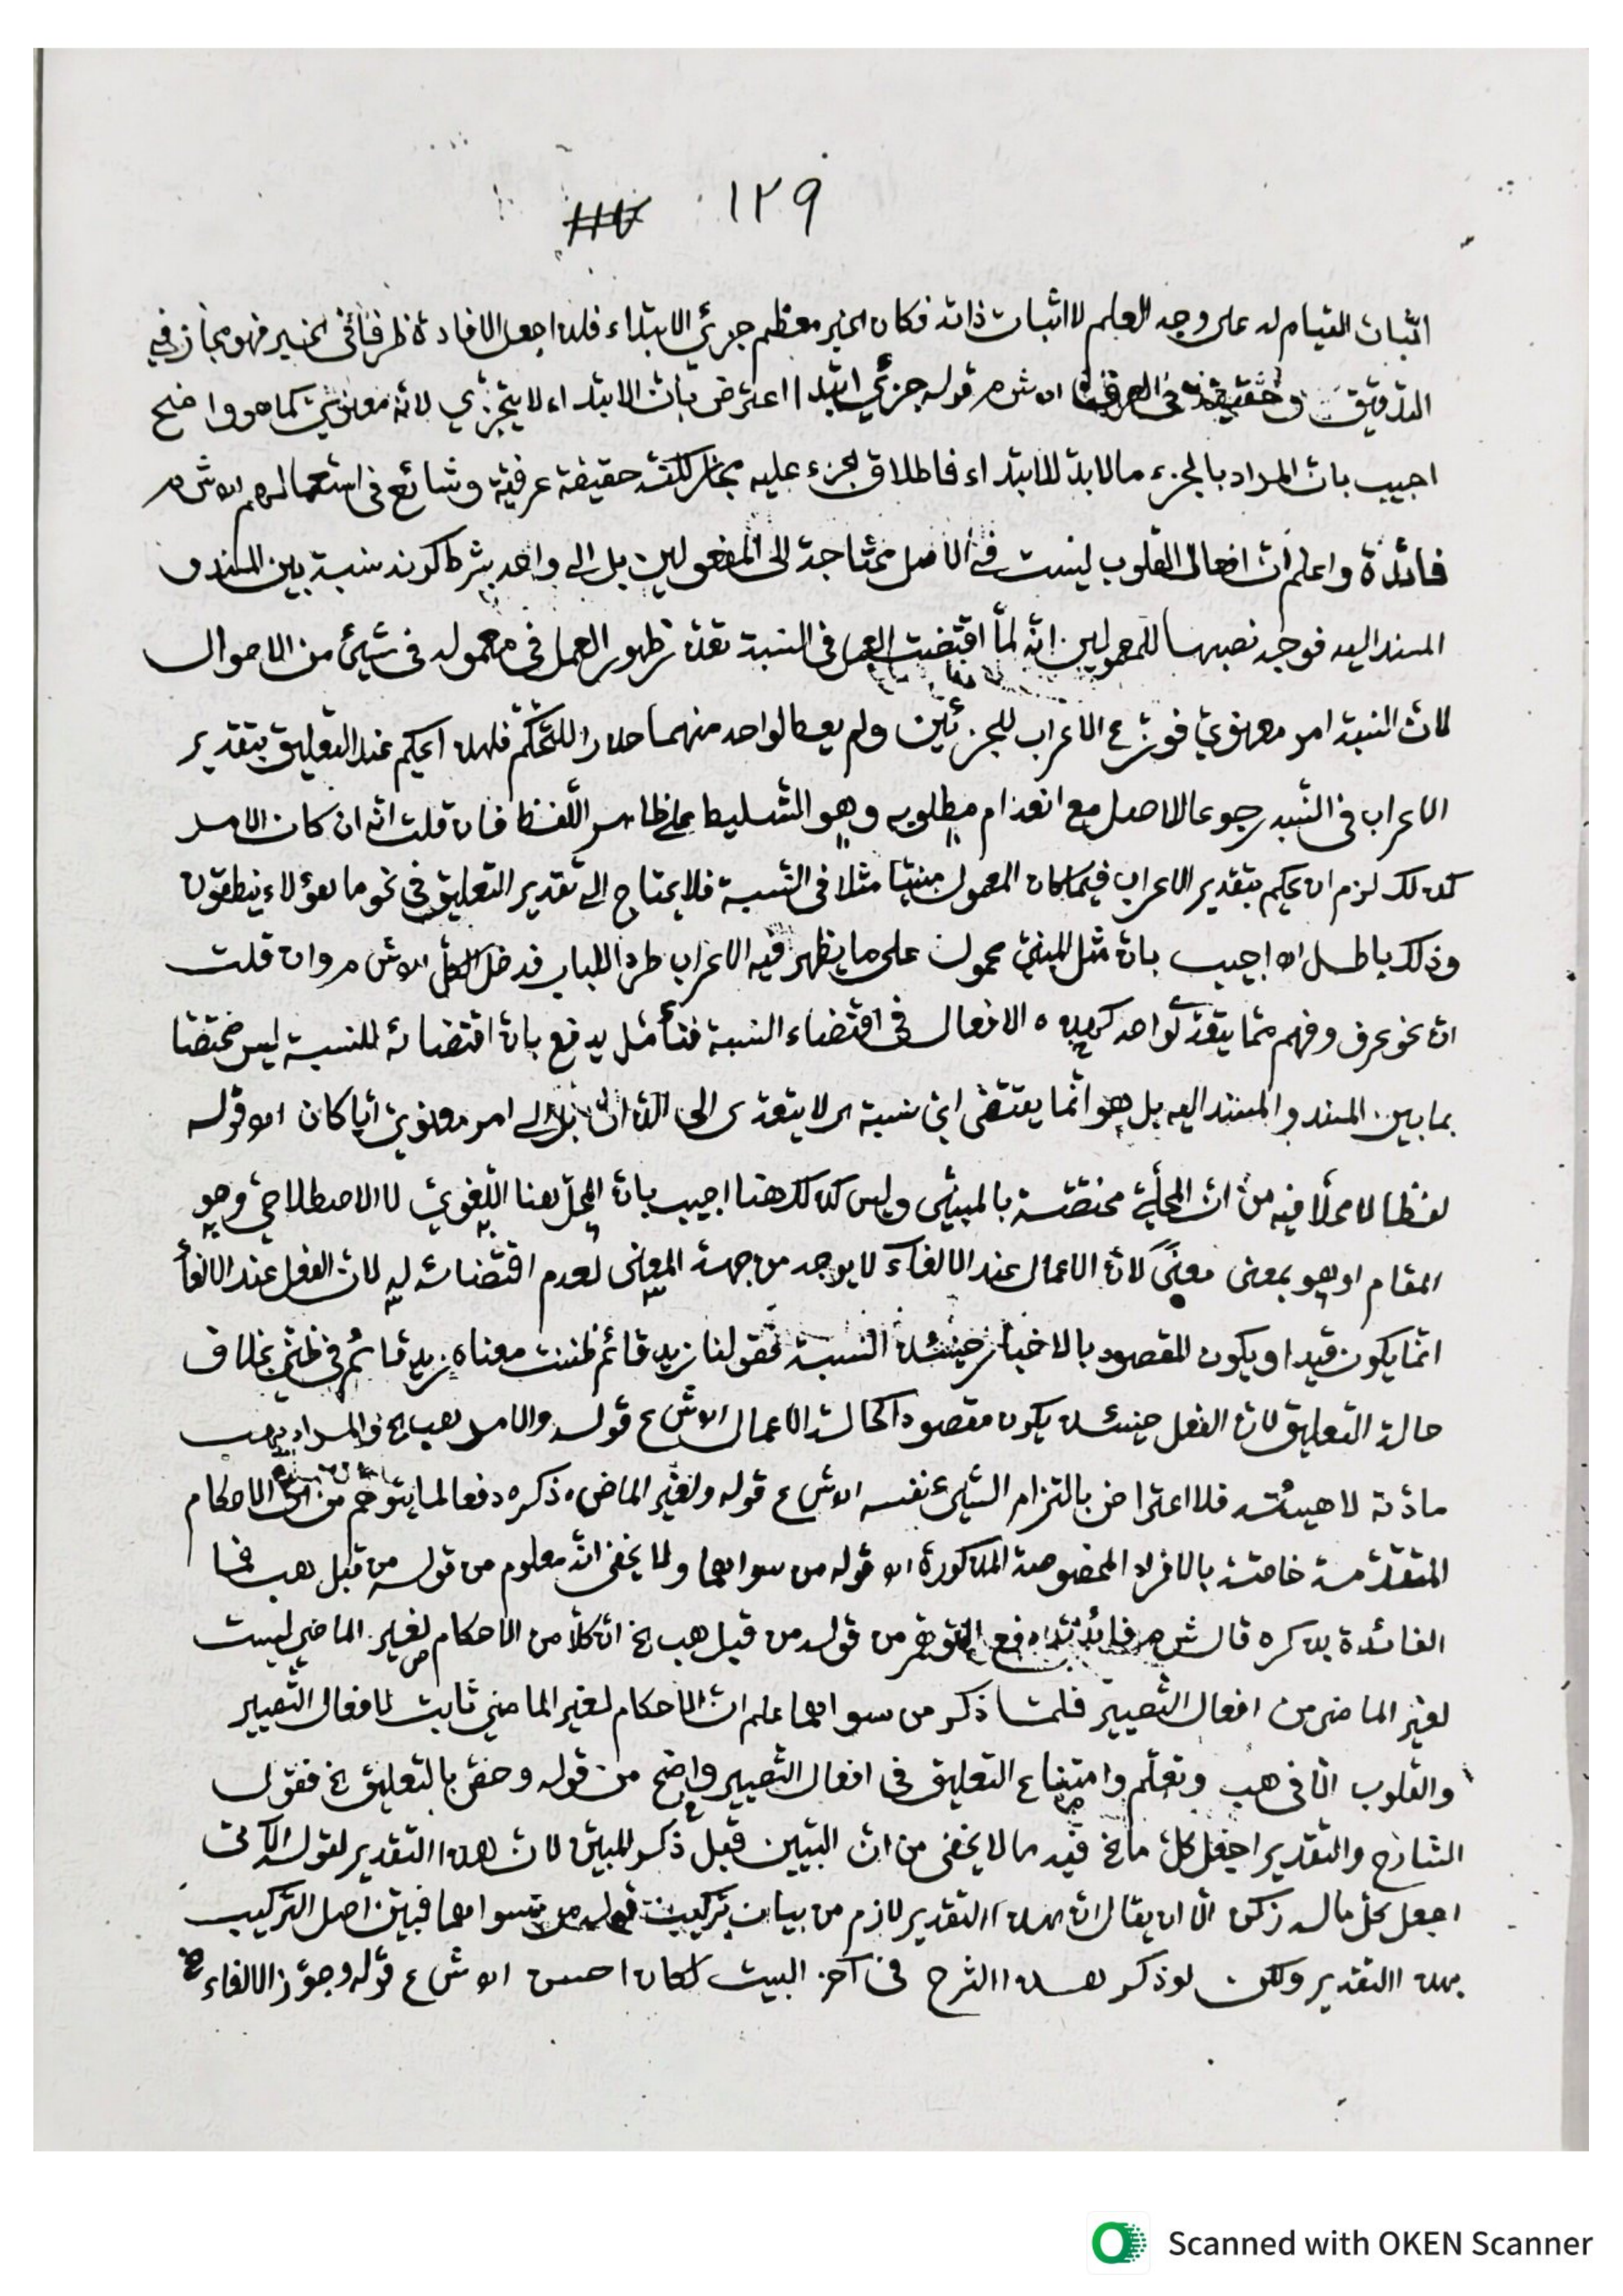 ١٢٩
اثبات القيام له على وجه العلم لا اثبات ذاته فكان الخبر معظم جزئي الابتداء فلذا جعل الافادة ظرفا في الخبر فهو مجاز في
التدقيق و حقيقة في العرف اه ش م قوله جزئي ابتدا اعترض بانّ الابتداء لا يتجزّي لانّه معنويّ كما هو واضح
اجيب بانّ المراد بالجزء ما لا بدّ للابتداء فاطلاق الجزء عليه مجاز لكنّه حقيقة عرفيّة وشائع في استعمالهم اه ش م
فائدة واعلم انّ افعال القلوب ليست في الاصل محتاجة الى المفعولين بل الى واحد بشرط كونه نسبة بين المسند و
المسند اليه فوجه نصبها للمعمولين انّه لمّا اقتضت العمل في النسبة تعذّر ظهور العمل في معموله في شيئ من الاحوال
لانّ النسبة امر معنويّ فوزّع الاعراب للجزئين ولم يعط لواحد منهما حذرا للتّحكّم فلهذا يحكم عند التعليق بتقدير
الاعراب في النسبة رجوعا للاصل مع انعدام مطلوبه وهو التسليط على ظاهر اللّفظ فان قلت انّه ان كان الامر
كذلك لزم ان يحكم بتقدير الاعراب فيما كان المعمول مبنيّا مثلا في النّسبة فلا يحتاج الى تقدير التعليق في نحو ما هؤلاء ينطقون
وذلك باطل اه اجيب بانّ مثل المبنيّ محمول على ما يظهر فيه الاعراب طردا للباب فدخل الكلّ اه ش م وان قلت
انّ نحو عرف وفهم ممّا يتعدّى لواحد كهذه الافعال في اقتضاء النسبة فتأمّل يدفع بانّ اقتضائه للنسبة ليس مختصّا
بما بين المسند والمسند اليه بل هو انّما يقتضي ايّ نسبة اى لا يتعدى الى الذات بل الى امر معنويّ أيّا كان اه قوله
لفظا لا محلّا فيه من انّ المحلّيّة مختصّة بالمبنيّ وليس كذلك هنا اجيب بانّ المحلّ هنا اللّغويّ لا الاصطلاحيّ وهو
المقام او هو بمعنى معنًى لانّ الاعمال عند الالغاء لا يوجد من جهة المعنى لعدم اقتضائه له لانّ الفعل عند الالغأ
انّما يكون قيدا ويكون المقصود بالاخبار حينئذ النسبة فقولنا زيد قائم ظننت معناه زيد قائم في ظنّي بخلاف
حالة التعليق لانّ الفعل حينئذ يكون مقصودا كحالة الاعمال اه ش ع قوله والامر هب الخ والمراد بهب
مادّته لا هيئته فلا اعتراض بالتزام الشيئ نفسه اه ش ع قوله ولغير الماض ذكره دفعا لما يتوهّم من انّ الاحكام
المتقدّمة خاصّة بالافراد المخصوصة المذكورة اه قوله من سواهما ولا يخفى انّه معلوم من قوله من قبل هب فما
الفائدة بذكره قال ش م فائدته دفع التوهّم من قوله من قبل هب الخ انّ كلّا من الاحكام لغير الماضي ليست
لغير الماضى من افعال التّصيير فلمّا ذكر من سواهما علم انّ الاحكام لغير الماضي ثابت لافعال التّصيير
والقلوب الّا في هب وتعلّم وامتناع التعليق في افعال التّصيير واضح من قوله وخصّ بالتعليق الخ فقول
الشارح والتقدير اجعل كلّ ما الخ فيه ما لا يخفى من انّ التبيين قبل ذكر المبيّن لانّ هذا التقدير لقوله الآتى
اجعل كلّ ما له زكن الّا ان يقال انّ هذا التقدير لازم من بيان تركيب قوله من سواهما فبيّن اصل التركيب
بهذا التقدير ولكن لو ذكر هذا الشرح في آخر البيت لكان احسن اه ش ع قوله وجوّز الالغاء الخ
Scanned with OKEN Scanner